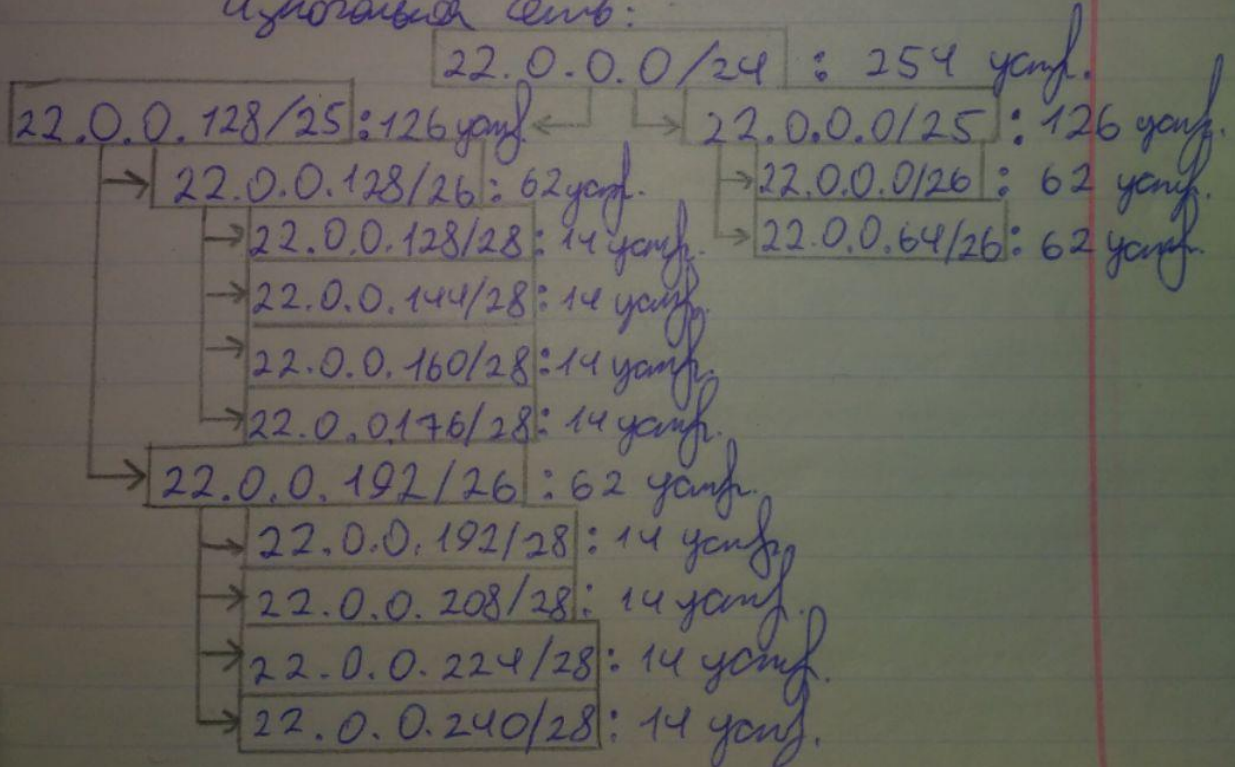 Изначальная сеть:
22.0.0.0/24 : 254 устр.
22.0.0.128/25 : 126 устр. 22.0.0.0/25 : 126 устр.
22.0.0.128/26 : 62 устр. 22.0.0.0/26 : 62 устр.
22.0.0.128/28 : 14 устр. 22.0.0.64/26 : 62 устр.
22.0.0.144/28 : 14 устр.
22.0.0.160/28 : 14 устр.
22.0.0.176/28 : 14 устр.
22.0.0.192/26 : 62 устр.
22.0.0.192/28 : 14 устр.
22.0.0.208/28 : 14 устр.
22.0.0.224/28 : 14 устр.
22.0.0.240/28 : 14 устр.